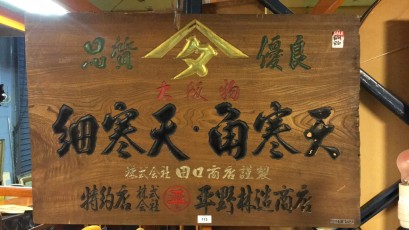 品質 タ 優良
大阪物
細寒天・角寒天
株式会社 田口商店謹製
特約店 株式会社 平野林造商店